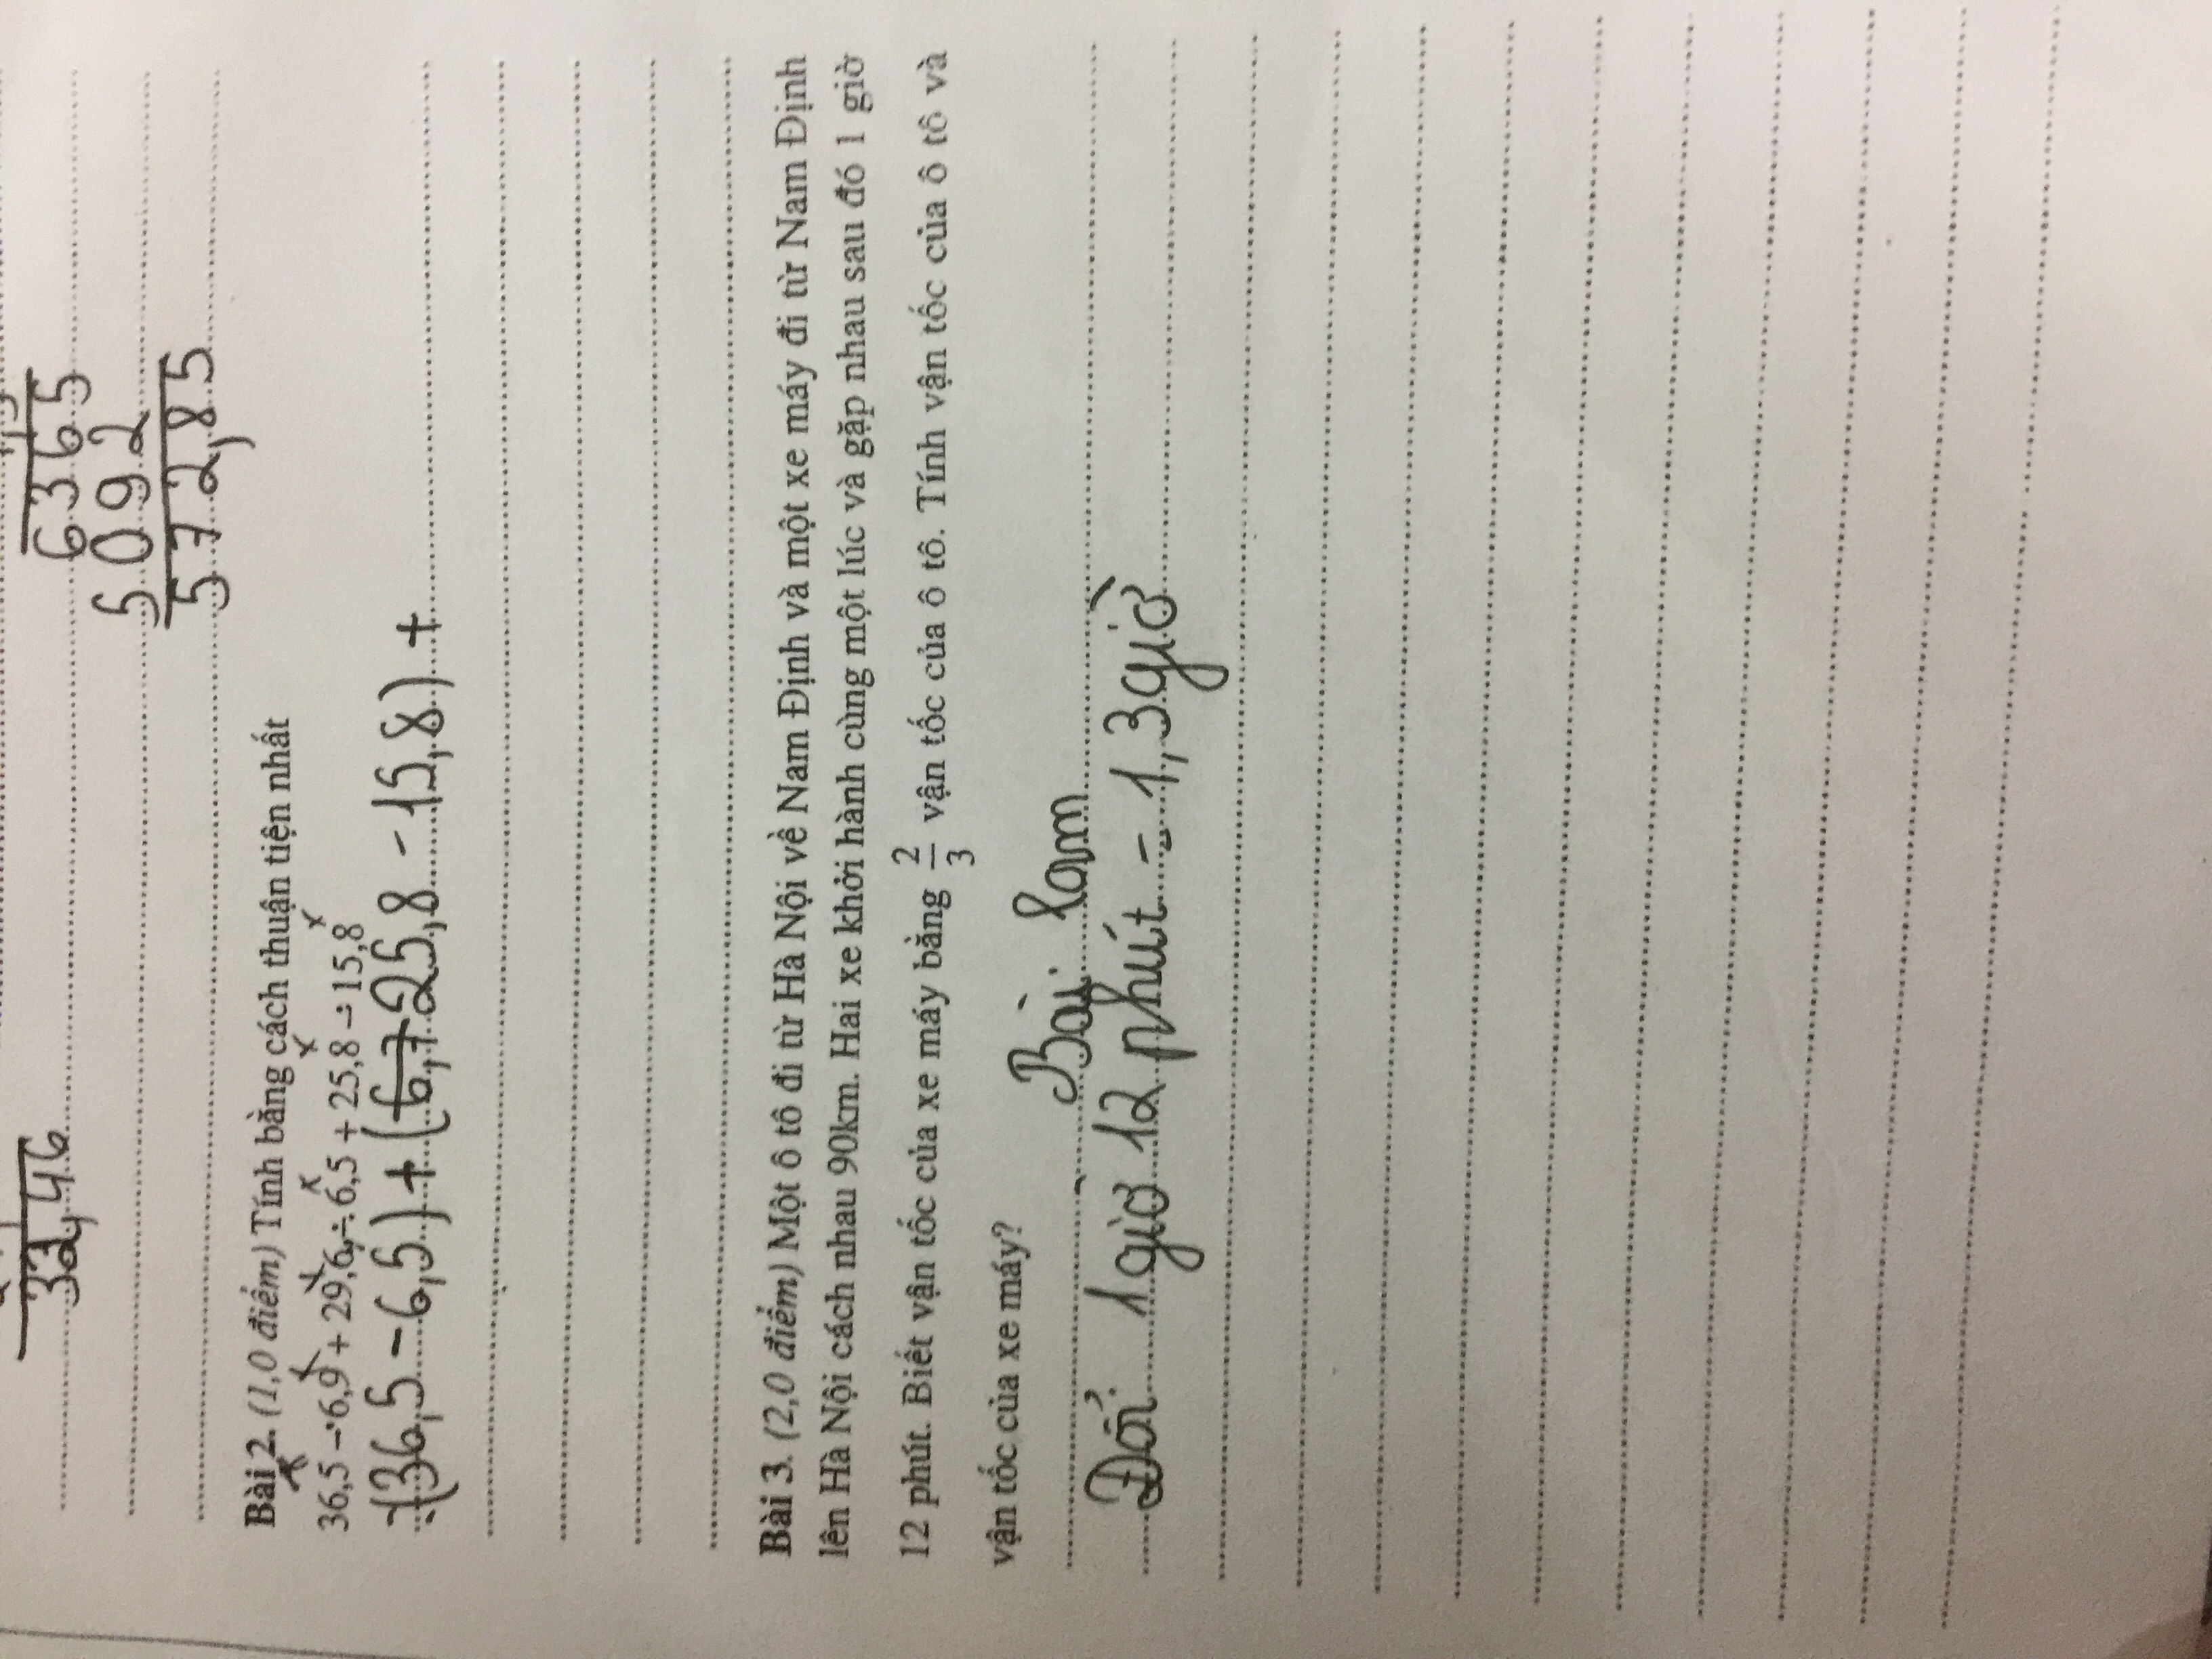 32,46
6365
5092
572,85
Bài 2. (1,0 điểm) Tính bằng cách thuận tiện nhất
36,5 - 6,9 + 29,6 - 6,5 + 25,8 - 15,8
(36,5 - 6,5) + (6,7 25,8 - 15,8) +
Bài 3. (2,0 điểm) Một ô tô đi từ Hà Nội về Nam Định và một xe máy đi từ Nam Định
lên Hà Nội cách nhau 90km. Hai xe khởi hành cùng một lúc và gặp nhau sau đó 1 giờ
12 phút. Biết vận tốc của xe máy bằng 2/3 vận tốc của ô tô. Tính vận tốc của ô tô và
vận tốc của xe máy?
Bài làm
Đổi 1 giờ 12 phút = 1,3 giờ